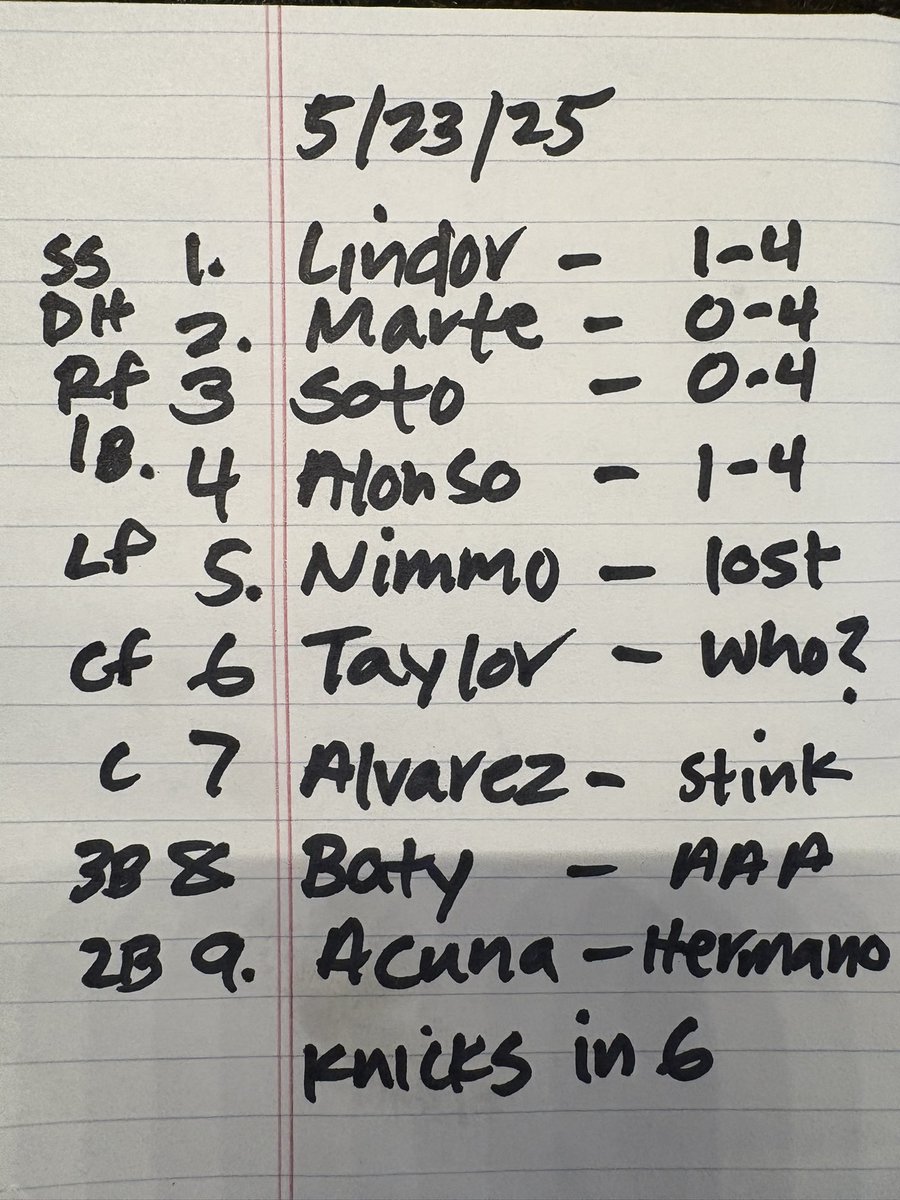 5/23/25
SS 1. Lindor - 1-4
DH 2. Marte - 0-4
Rf 3 Soto - 0-4
1B. 4 Alonso - 1-4
LF 5. Nimmo - lost
Cf 6 Taylor - Who?
C 7 Alvarez - Stink
3B 8 Baty - AAA
2B 9. Acuna - Hermano
Knicks in 6